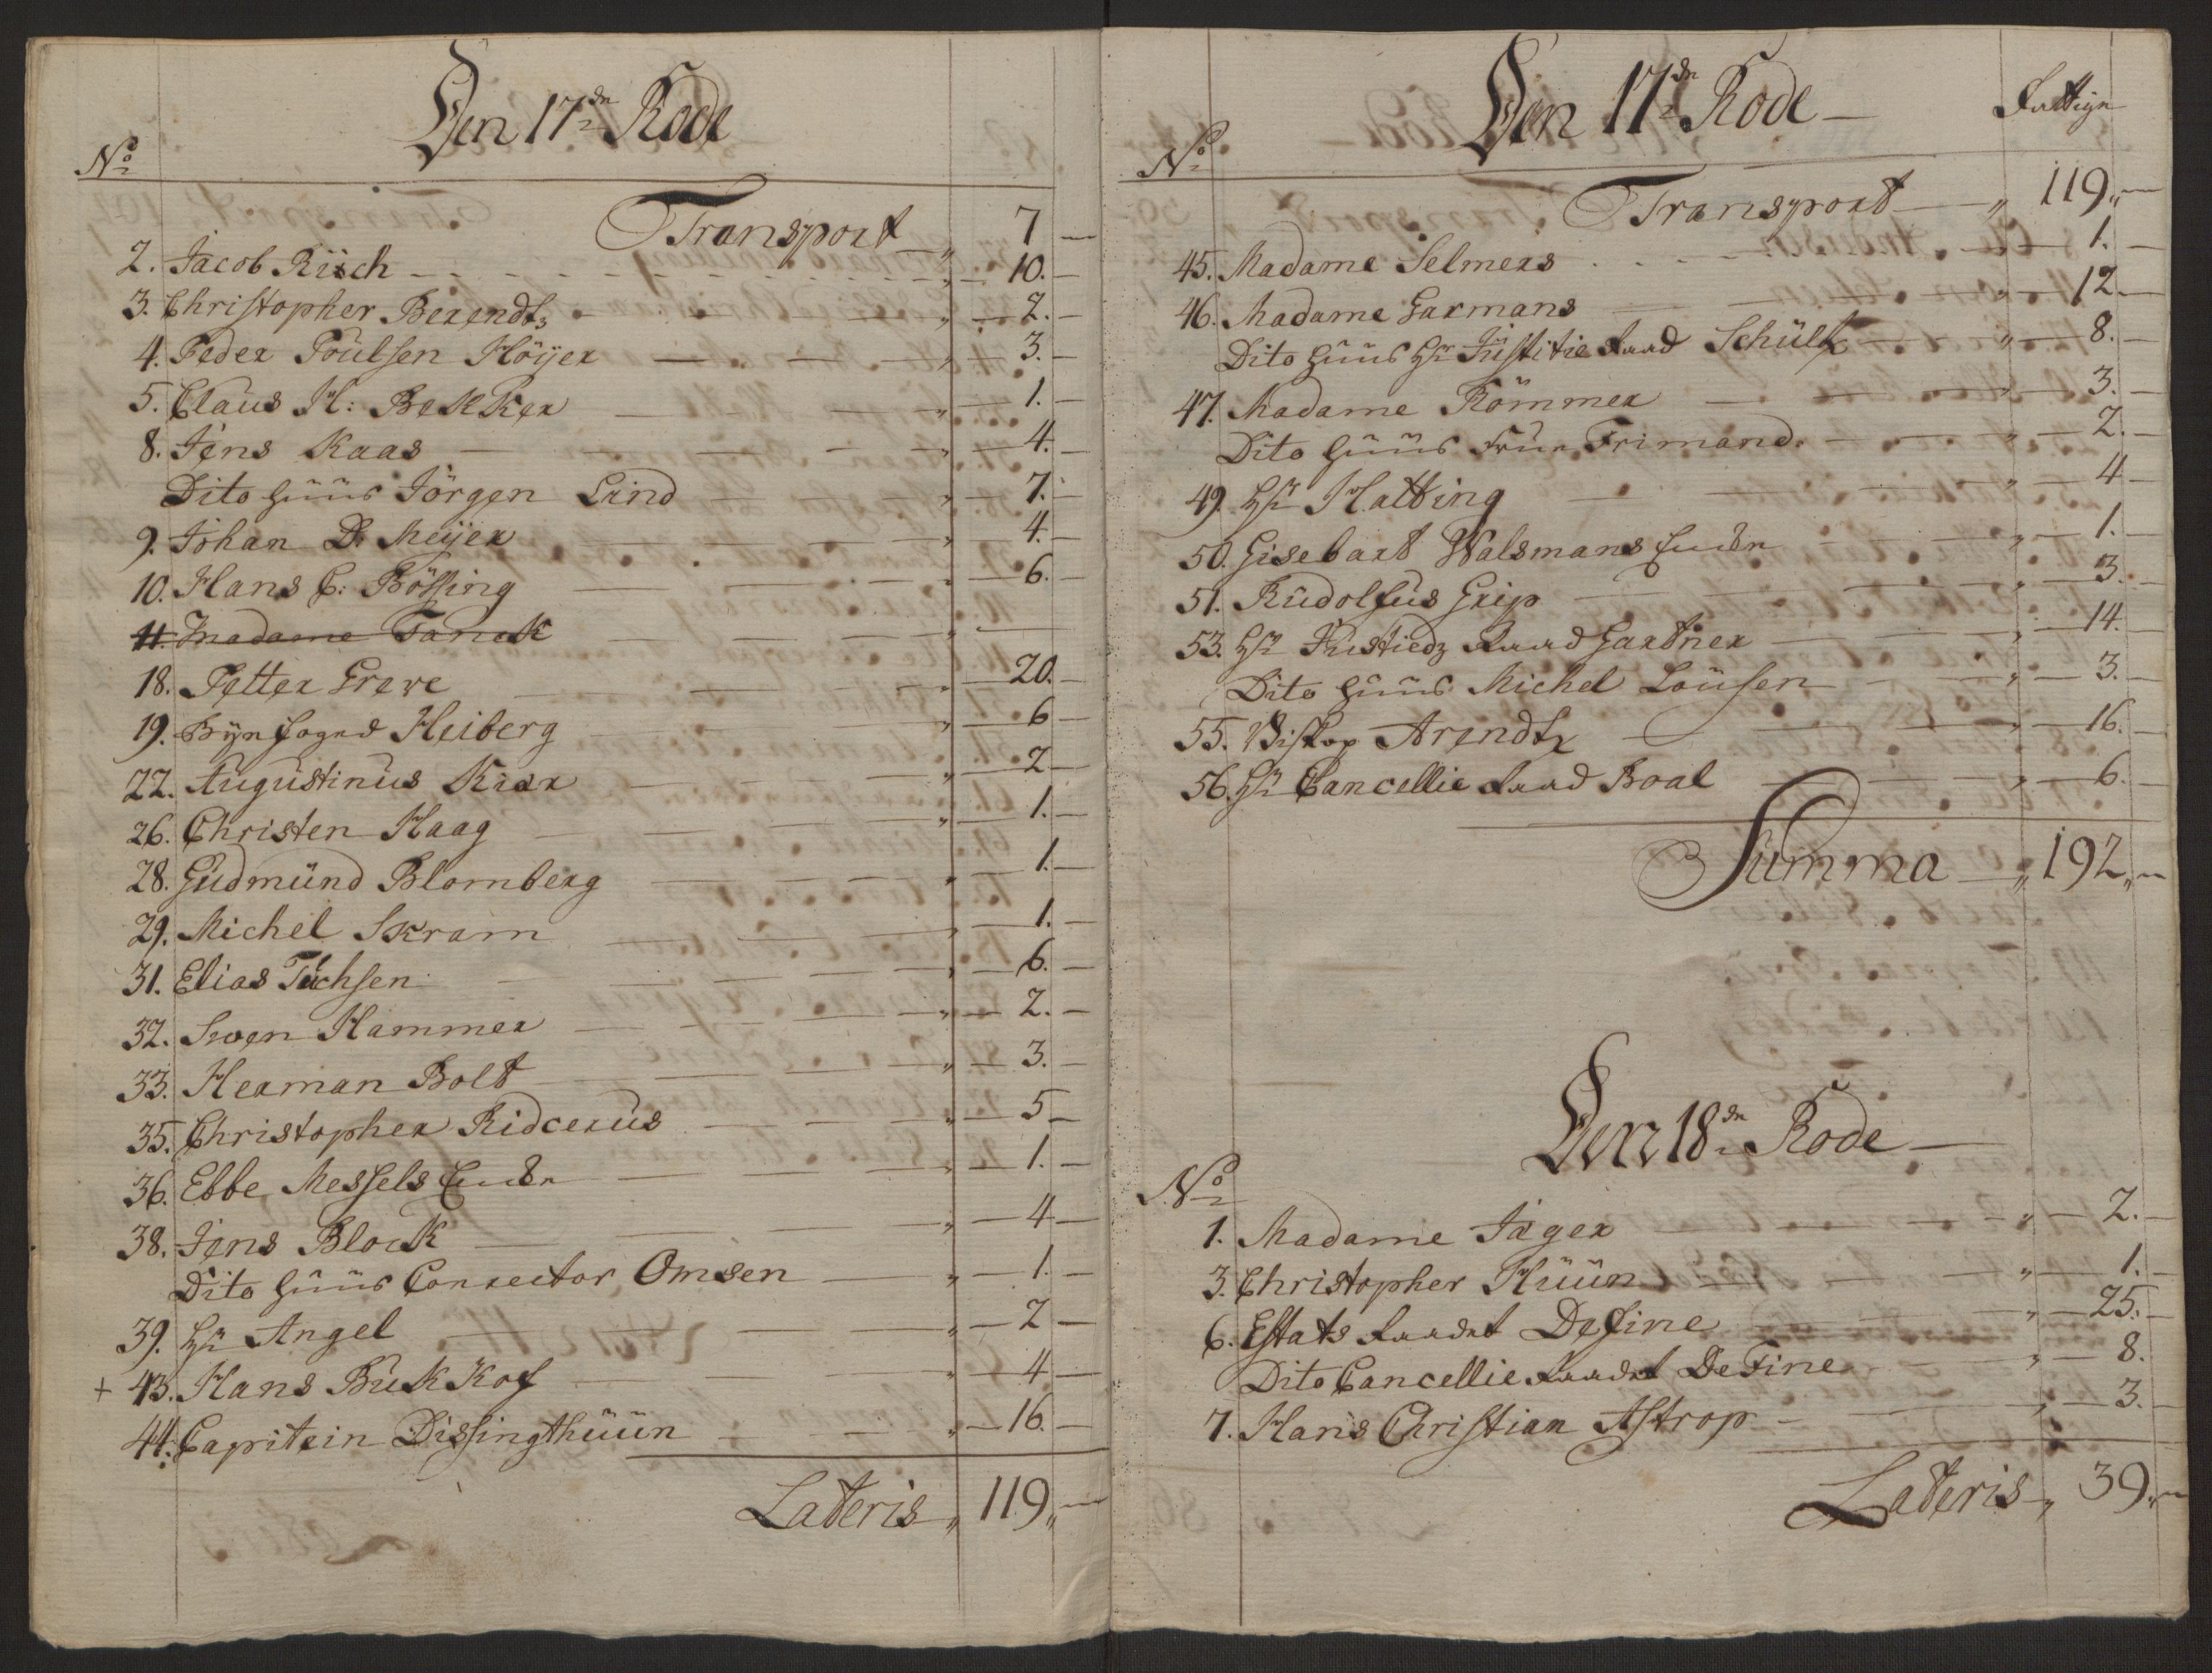 Den 17de Rode
No
Transport „ 7 —
2. Jacob Risch „ 10. —
3. Christopher Berendts „ 2. —
4. Peder Poulsen Höijer „ 3. —
5. Claus H: Bekker „ 1. —
8. Jens Kaas „ 4. —
Dito Huus Jörgen Lind „ 7. —
9. Johan D. Meijer „ 4. —
10. Hans C: Bössing „ 6. —
11. Madame Tanck „ —
18. Petter Greve „ 20. —
19. Bÿe foged Heiberg „ 6 —
22. Augustinus Krax „ 2 —
26. Christen Haag „ 1. —
28. Gudmund Blomberg „ 1. —
29. Michel Skram „ 1. —
31. Elias Tuchsen „ 6. —
32. Swen Hammer „ 2. —
33. Herman Bolt „ 3. —
35. Christopher Ridcerus „ 5 —
36. Ebbe Messels Encke „ 1. —
38. Jens Block „ 4 —
Dito Huus Conrector Omsen „ 1. —
39. Hr Angel „ 2 —
+ 43. Hans Bukkof „ 4 —
44. Capitein Dissingthuun „ 16. —
Lateris „ 119 „ —
Den 17de Rode —
Fattige
No
Transport „ 119 „ —
45. Madame Selmers 1. —
46. Madame Garmans „ 12 —
Dito Huus Hr Justitie Raad Schultz „ 8. —
47. Madame Römmer „ 3. —
Dito Huus Frue Frimand „ 2. —
49. Hr Halting „ 4 —
50. Gisebart Walsmans Encke „ 1. —
51. Rudolfus Grip „ 3. —
53. Hr Justiedz Raad Gartner „ 14. —
Dito Huus Michel Lousen „ 3. —
55. Biskop Arendtz „ 16. —
56. Hr Cancellie Raad Boal „ 6. —
Summa „ 192 „ —
Den 18de Rode —
No
1. Madame Jäger „ 2. —
3. Christopher Huun „ 1. —
6. Estats Raadet Define „ 25. —
Dito Cancellie Raadet De Fine „ 8.
7. Hans Christian Astrop „ 3. —
Lateris „ 39 „ —